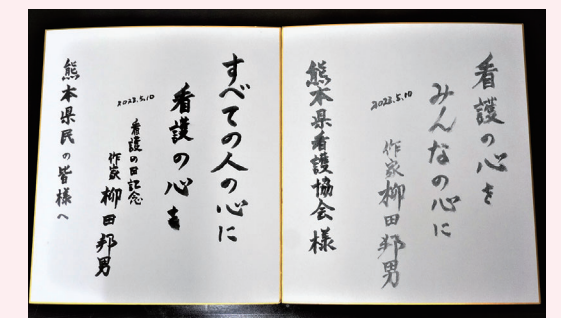 看護の心を
みんなの心に
2023.5.10
作家 柳田邦男
熊本県看護協会様
すべての人の心に
看護の心を
2023.5.10
看護の日記念
作家 柳田邦男
熊本県民の皆様へ